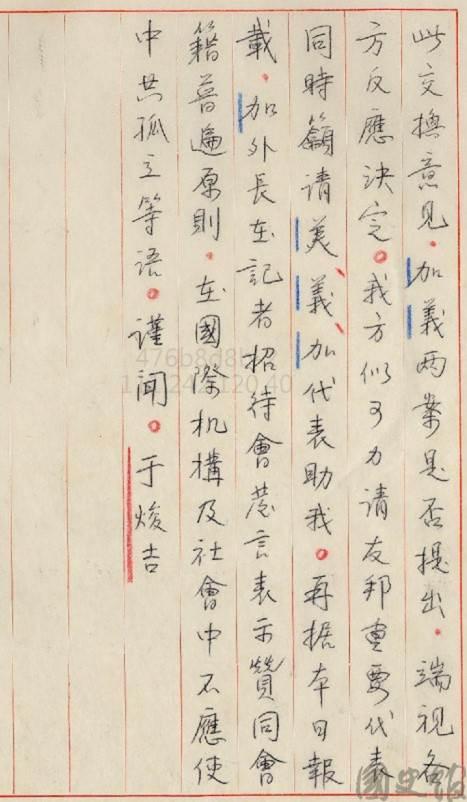 此交換意見。加義兩案是否提出。端視各
方反應決定。我方似可力請友邦重要代表
同時籲請美、義、加代表助我。再据本日報
載。加外長在記者招待會發言表示贊同會
籍普遍原則。在國際机構及社會中不應使
中共孤立等語。謹聞。于焌吉
國史館